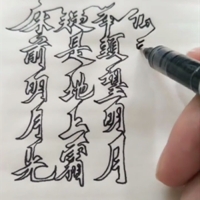 床前明月光
疑是地上霜
举頭望明月